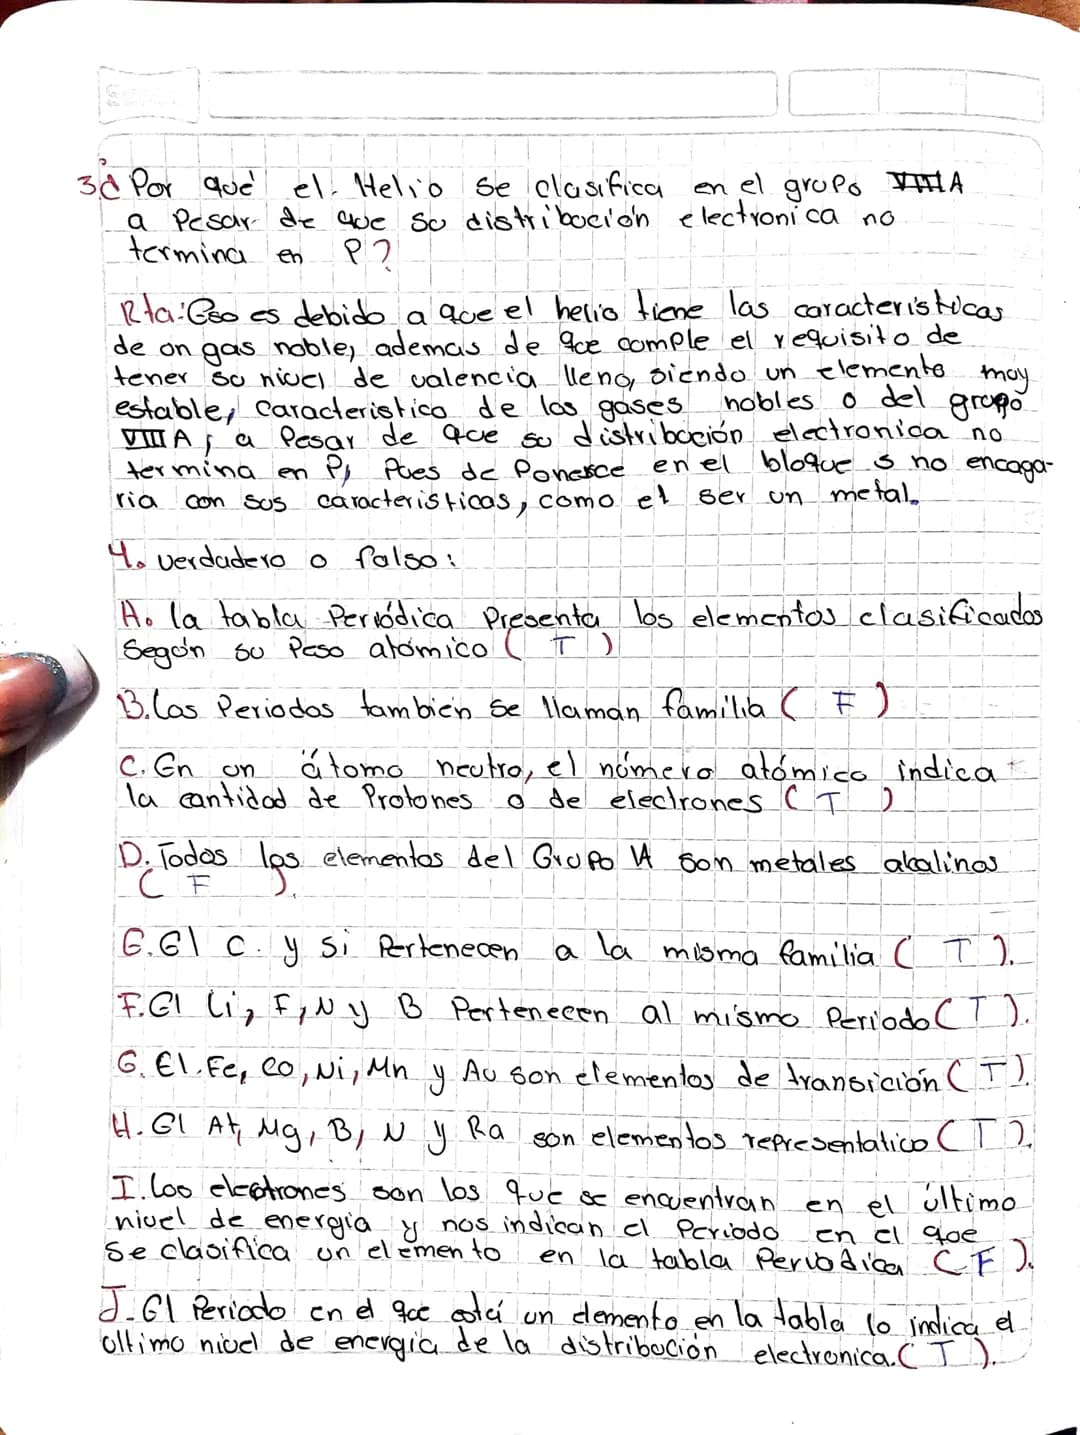 3. ¿ Por qué el Helio se clasifica en el grupo VIIIA
a pesar de que su distribución electronica no
termina en P?
Rta: Eso es debido a que el helio tiene las caracteristicas
de un gas noble, ademas de que cumple el requisito de
tener su nivel de valencia lleno, siendo un elemento muy
estable, caracteristico de los gases nobles o del grupo
VIII A, a pesar de que su distribución electronica no
termina en P, Pues de Ponerse en el bloque s no encaga-
ria con sus caracteristicas, como el ser un metal.
4. verdadero o falso:
A. la tabla Periódica Presenta los elementos clasificados
Según su Peso atómico ( T )
B. Los Periodos también se llaman familia ( F )
C. En un átomo neutro, el número atómico indica
la cantidad de Protones o de electrones ( T )
D. Todos los elementos del Grupo IA son metales akalinos
( F ).
E. El C. y Si Pertenecen a la misma familia ( T ).
F. El Li, F, N y B Pertenecen al mismo Periodo ( T ).
G. El. Fe, Co, Ni, Mn y Au son elementos de transición ( T ).
H. El At, Mg, B, N y Ra son elementos representatico ( T ).
I. Los electrones son los que se encuentran en el último
nivel de energía y nos indican el Periodo en el que
Se clasifica un elemento en la tabla Periodica ( F ).
J. El Periodo en el que está un elemento en la tabla lo indica el
ultimo nivel de energía de la distribución electronica. ( T ).